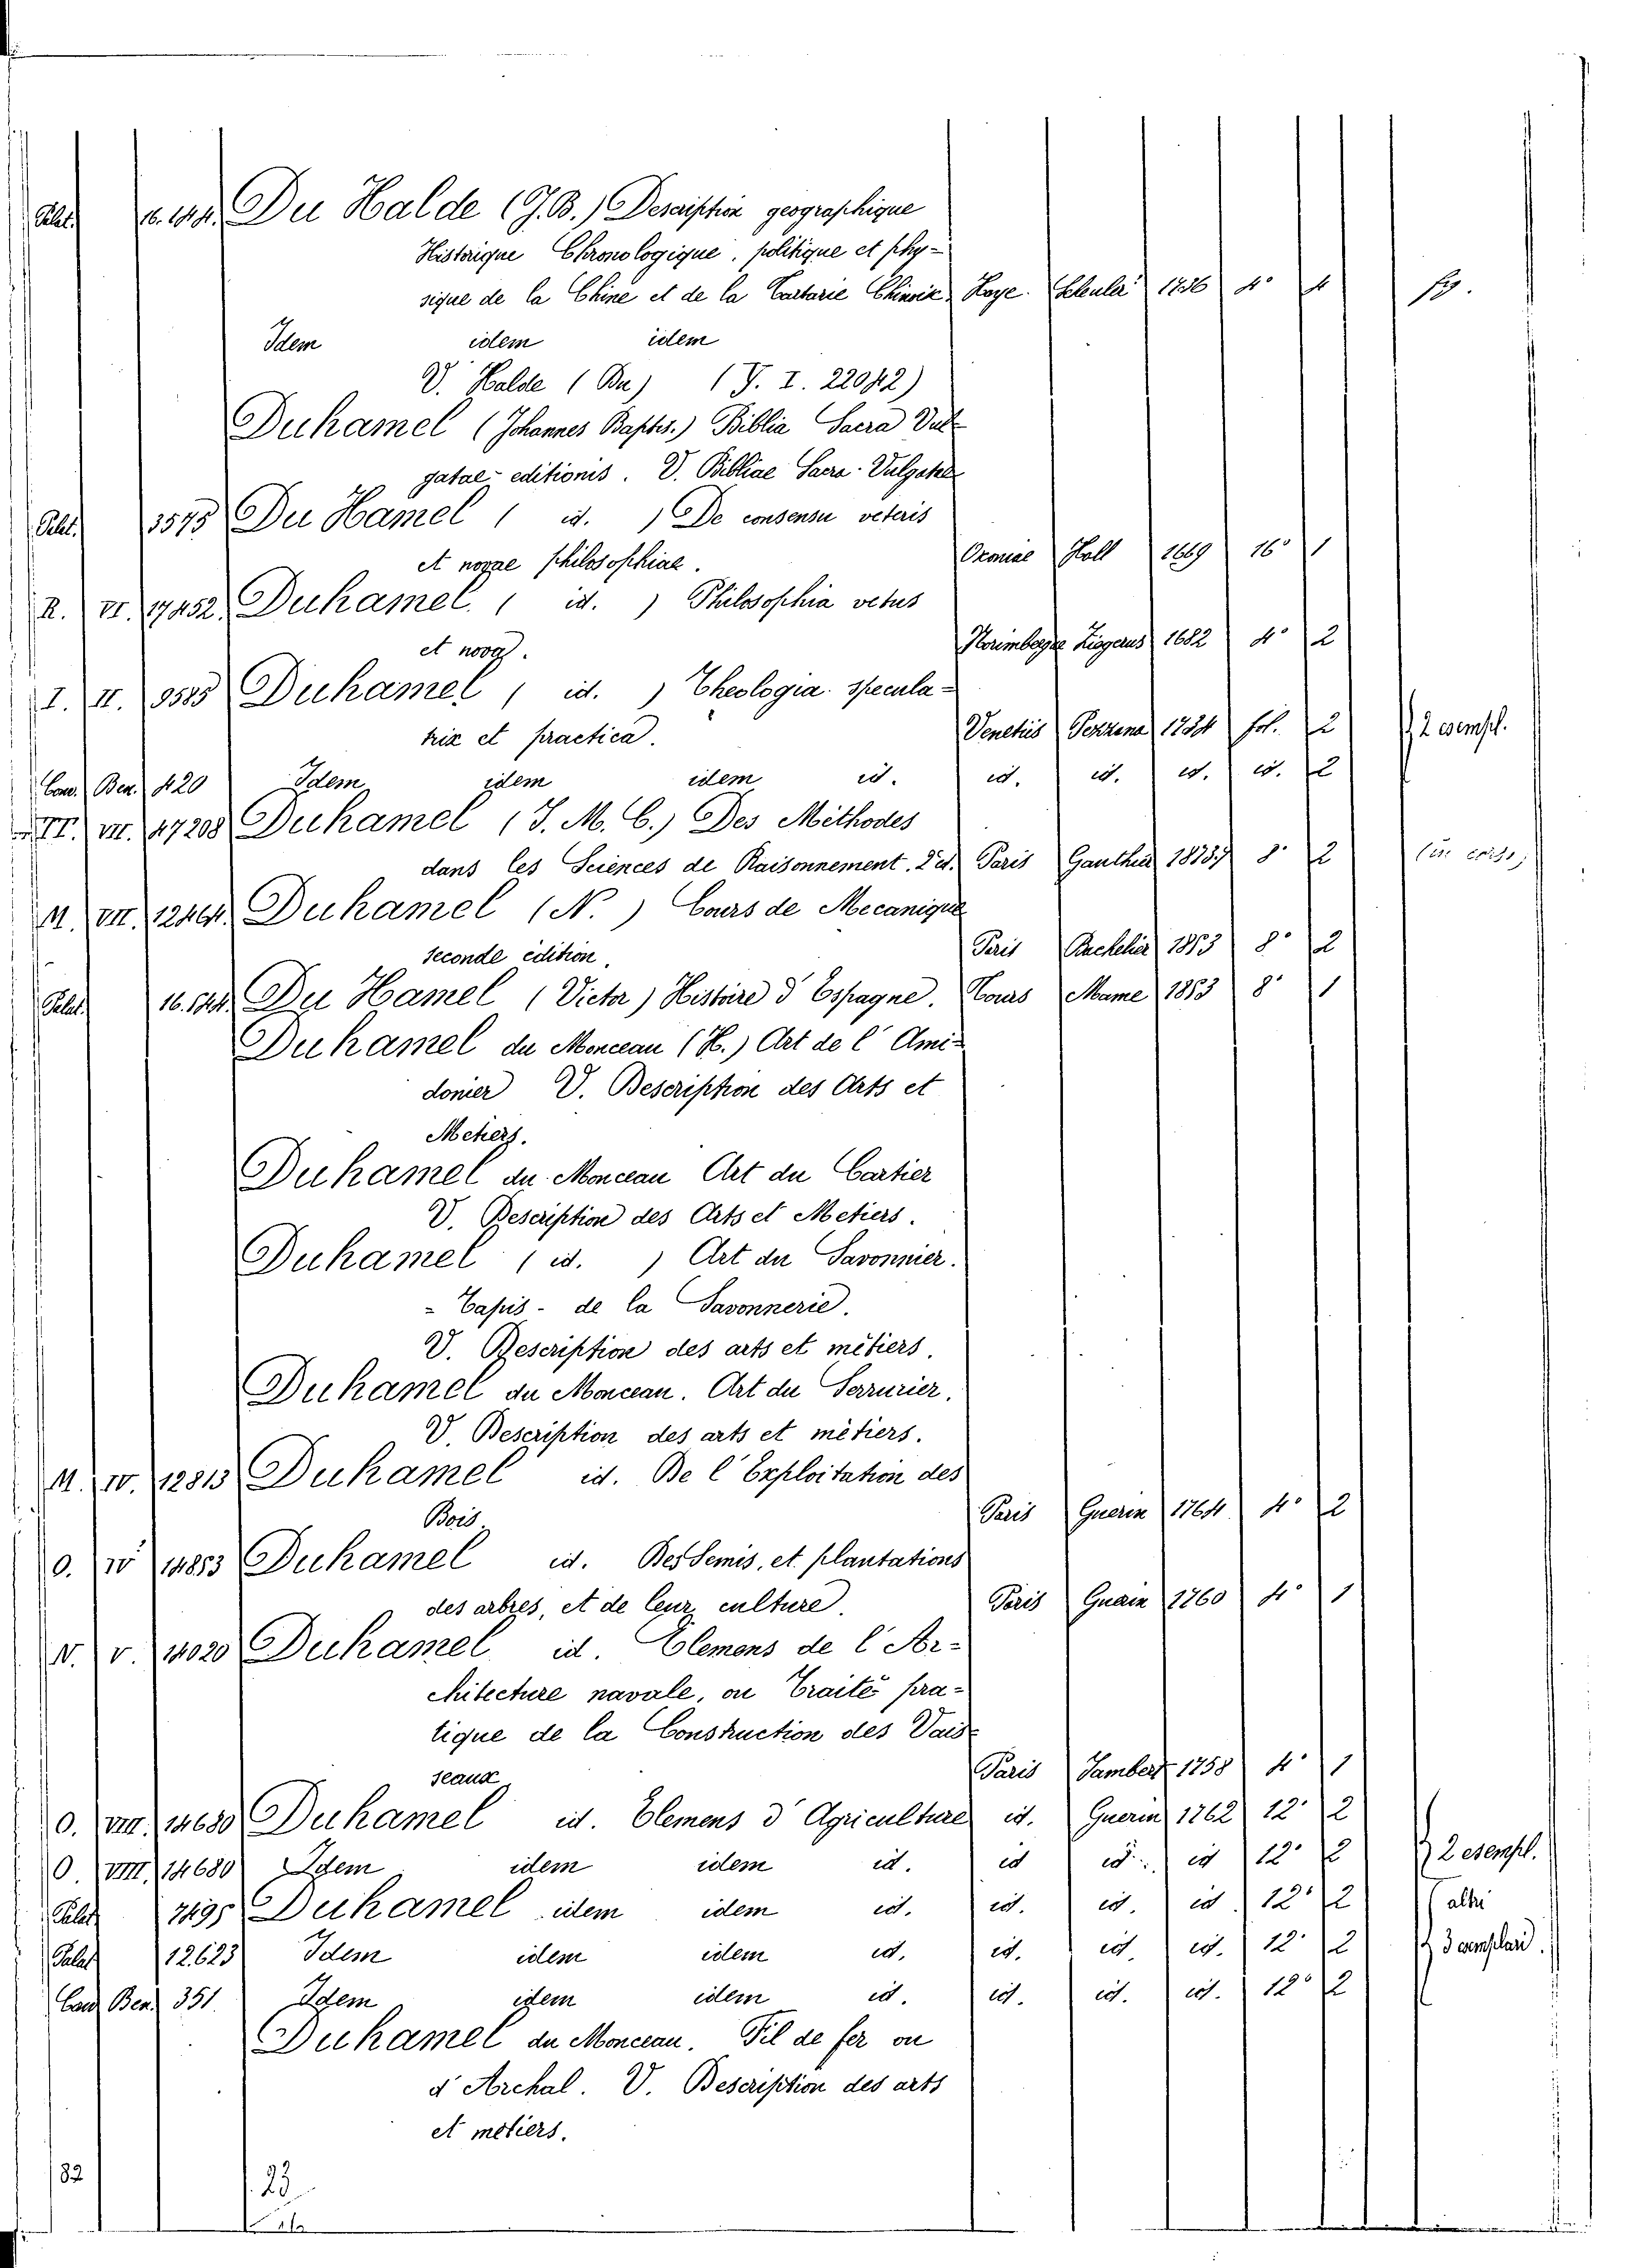 Palat. 16.144. Du Halde (J.B.) Description geographique
Historique Chronologique, politique et phy-
sique de la Chine et de la Tartarie Chinoise Haye. Scheuler 1736 4° 4 fig.
Idem idem idem
V. Halde (Du) (V. I. 22042)
Duhamel (Johannes Baptis.) Biblia Sacra Vul-
gatae editionis. V. Bibliae Sacra Vulgatae
Palat. 3575 Du Hamel ( id. ) De consensu veteris
et novae philosophiae. Oxoniae Hall 1669 16° 1
R. VI. 17452. Duhamel. ( id. ) Philosophia vetus
et nova. Norimbergae Ziegerus 1682 4° 2
I. II. 9585 Duhamel ( id. ) Theologia specula-
trix et practica. Venetiis Pezzana 1734 fol. 2 2 esempl.
Con. Ben. 420 Idem idem idem id. id. id. id. id. 2
VII. 47208 Duhamel (J. M. C.) Des Méthodes
dans les Sciences de Raisonnement. 2 ed. Paris Gauthier 8° 2
M. VII. 12464. Duhamel (N.) Cours de Mecanique
seconde édition. Paris Bachelier 1853 8° 2
Palat. 16.544. Du Hamel (Victor) Histoire d'Espagne. Tours Mame 1853 8° 1
Duhamel du Monceau (H.) Art de l'Ami-
donier V. Description des Arts et
Metiers.
Duhamel du Monceau Art du Cartier
V. Description des Arts et Metiers.
Duhamel ( id. ) Art du Savonnier.
= Tapis - de la Savonnerie.
V. Description des arts et métiers.
Duhamel du Monceau. Art du Serrurier.
V. Description des arts et métiers.
M. IV. 12813 Duhamel id. De l'Exploitation des
Bois. Paris Guerin 1764 4° 2
O. IV 14853 Duhamel id. Des Semis, et plantations
des arbres, et de leur culture. Paris Guerin 1760 4° 1
N. V. 14020 Duhamel id. Elemens de l'Ar-
chitecture navale, ou Traité pra-
tique de la Construction des Vais-
seaux. Paris Jambert 1758 4° 1
O. VIII. 14680 Duhamel id. Elemens d'Agriculture id. Guerin 1762 12° 2
O. VIII. 14680 Idem idem idem id. id id. id 12° 2 2 esempl.
Palat. 7495 Duhamel idem idem id. id. id. id. 12° 2 altri
Palat. 12.623 Idem idem idem id. id. id. id. 12° 2 3 esemplari.
Con. Ben. 351. Idem idem idem id. id. id. id. 12° 2
Duhamel du Monceau. Fil de fer ou
d'Archal. V. Description des arts
et métiers.
82
23